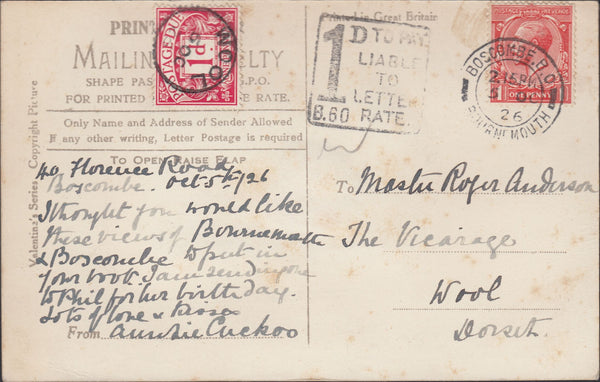 PRIN
Printed in Great Britain
MAILIN LTY
SHAPE PAS G.P.O.
FOR PRINTED RATE.
Only Name and Address of Sender Allowed
If any other writing, Letter Postage is required
TO OPEN RAISE FLAP
Valentine's Series Copyright Picture
POSTAGE DUE
1D
WOOL
1D TO PAY
LIABLE
TO
LETTER
RATE.
B.60
POSTAGE REVENUE
ONE PENNY
BOSCOMBE B.O.
2.15 PM
5
26
BOURNEMOUTH
40 Florence Road
Boscombe. Oct 5th/26
I thought you would like
these views of Bournemouth
& Boscombe to put in
your book. I am sending one
to Phil for her birthday.
Lots of love & kisses
From Auntie Cuckoo
To Master Roger Anderson
The Vicarage
Wool
Dorset.